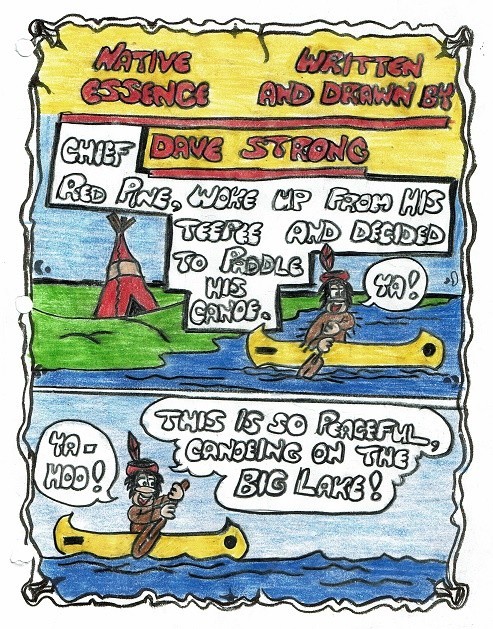 NATIVE
ESSENCE
WRITTEN
AND DRAWN BY
DAVE STRONG
CHIEF
RED PINE, WOKE UP FROM HIS
TEEPEE AND DECIDED
TO PADDLE
HIS
CANOE.
YA!
YA-
HOO!
THIS IS SO PEACEFUL,
CANOEING ON THE
BIG LAKE!